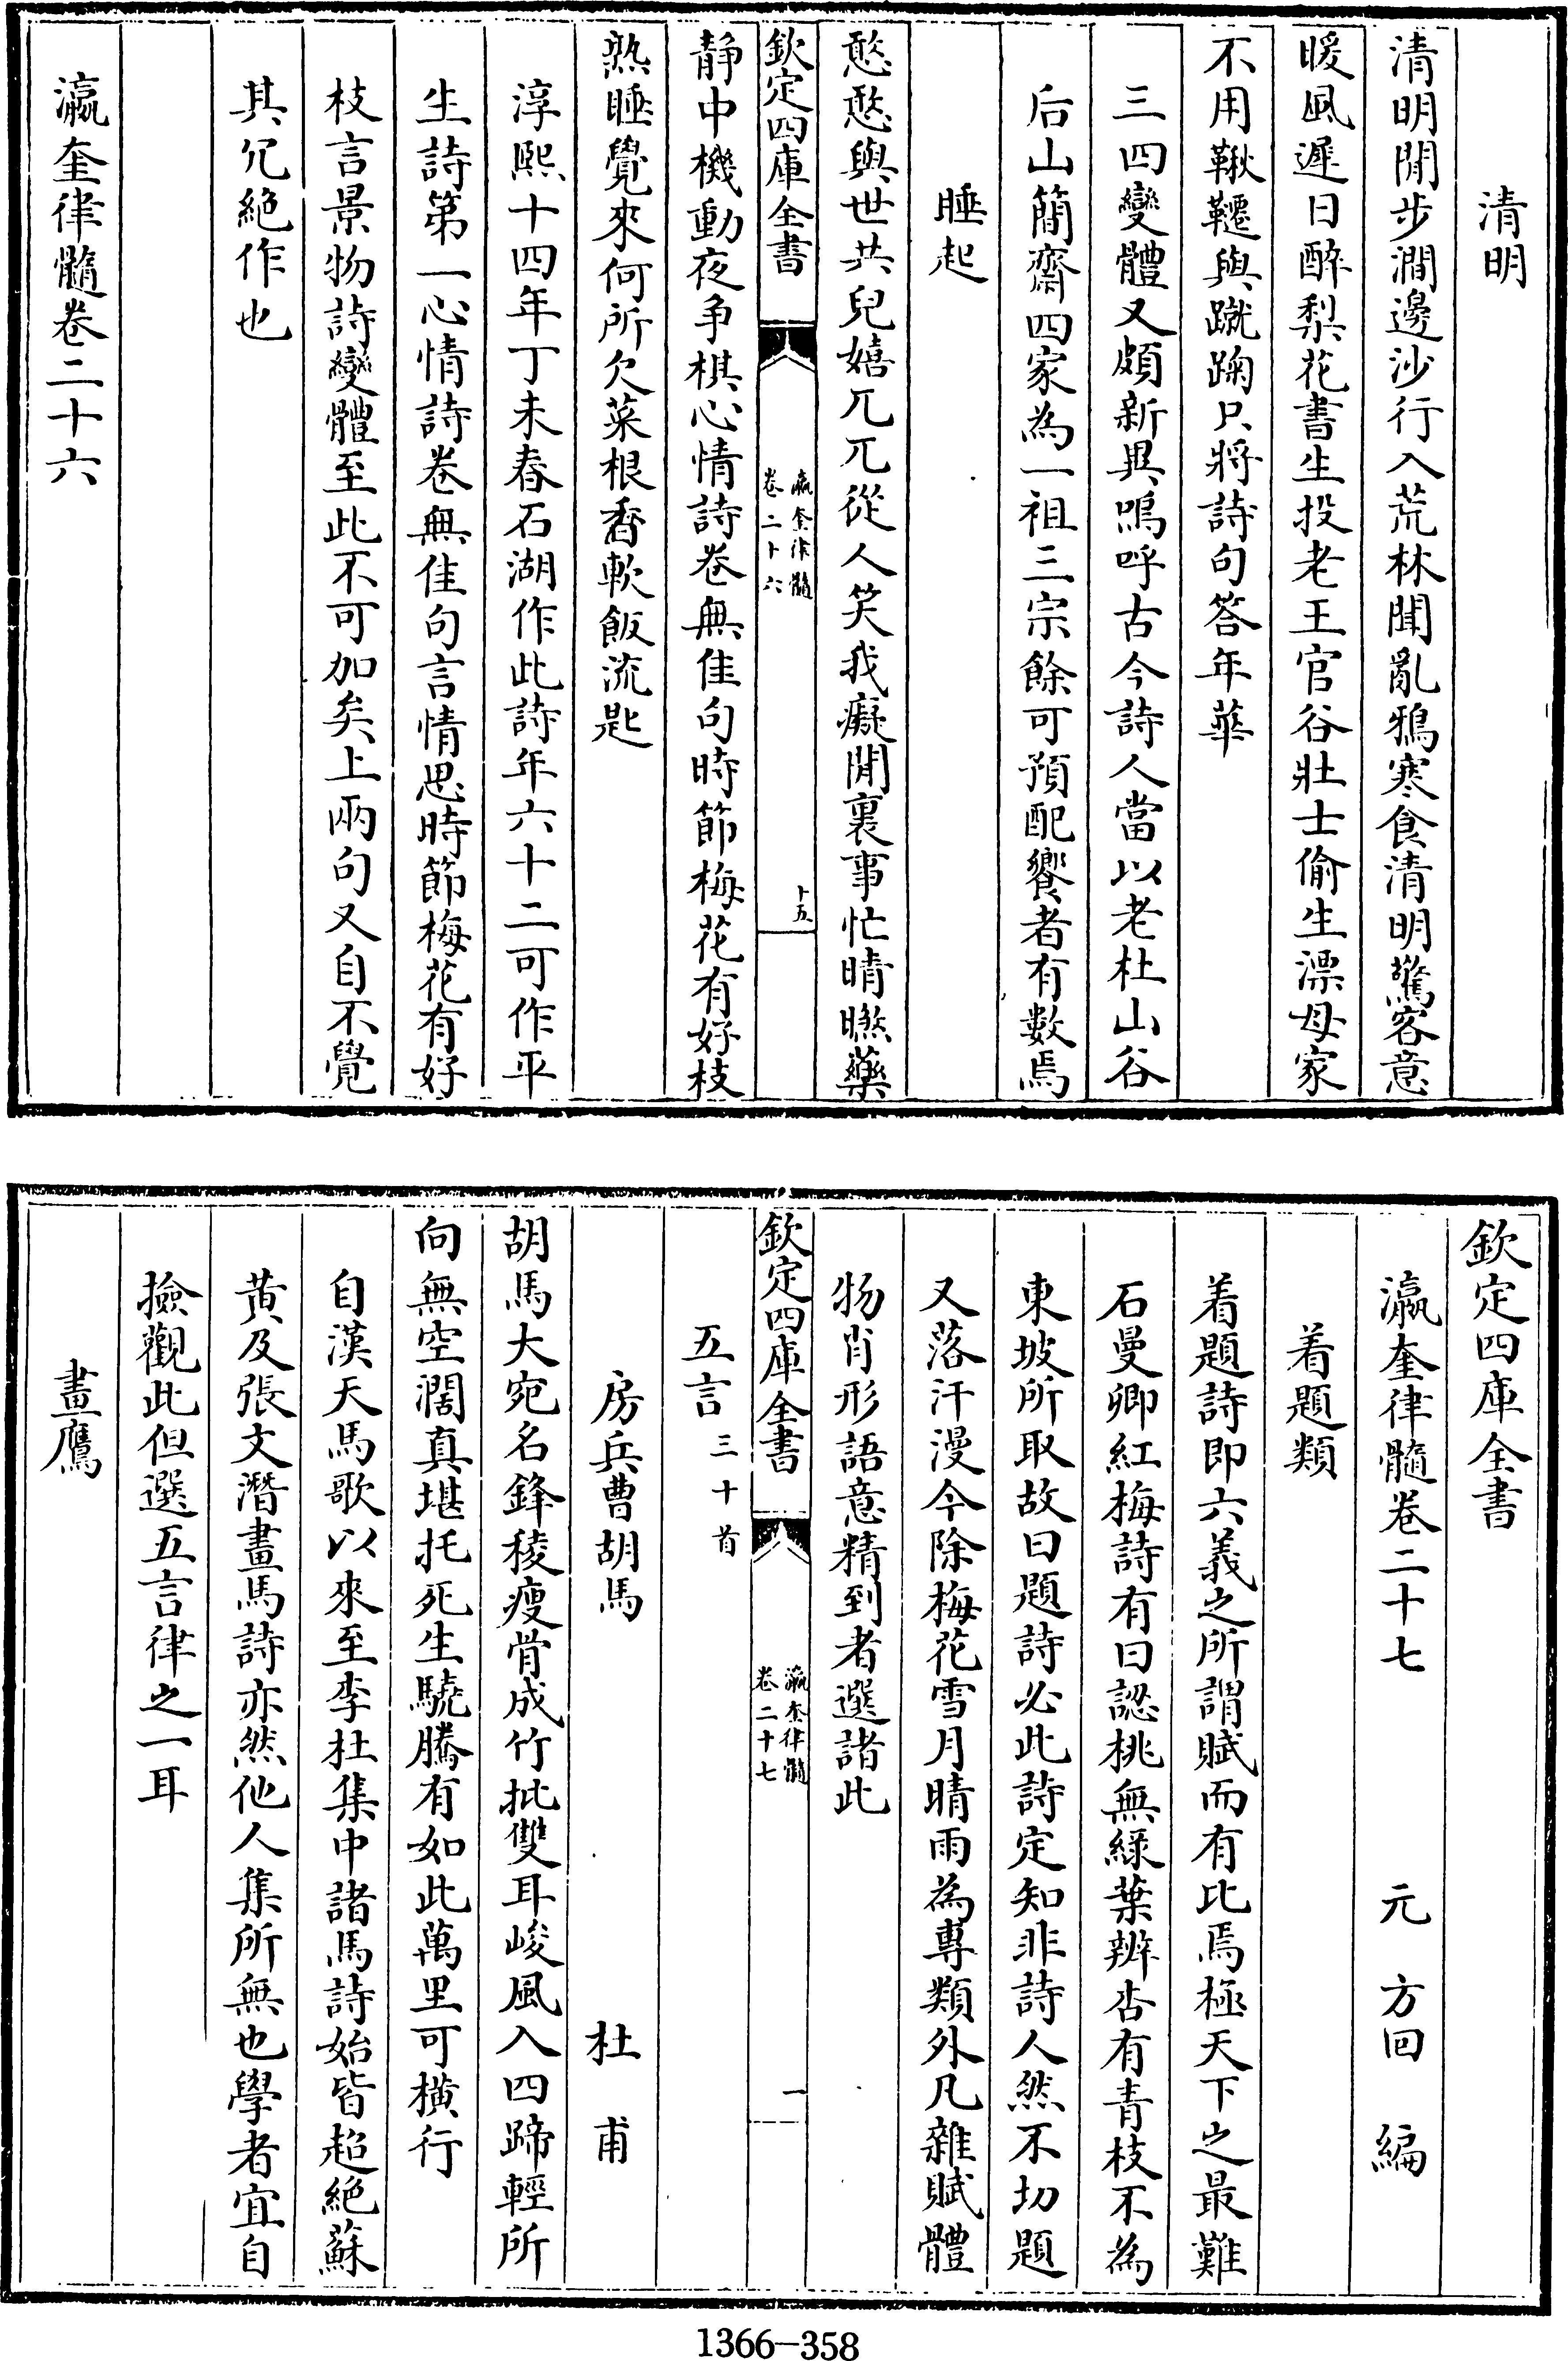 清明
清明閒步澗邊沙行入荒林聞亂鴉寒食清明驚客意
暖風遲日醉梨花書生投老王官谷壯士偷生漂母家
不用鞦韆與蹴踘只將詩句答年華
三四變體又頗新異嗚呼古今詩人當以老杜山谷
后山簡齋四家為一祖三宗餘可預配饗者有數焉
睡起
憨憨與世共兒嬉兀兀從人笑我癡閒裏事忙晴㬠藥
欽定四庫全書
瀛奎律髓
卷二十六
十五
静中機動夜争棋心情詩卷無佳句時節梅花有好枝
熟睡覺來何所欠菜根香軟飯流匙
淳熙十四年丁未春石湖作此詩年六十二可作平
生詩第一心情詩卷無佳句言情思時節梅花有好
枝言景物詩變體至此不可加矣上兩句又自不覺
其冗絶作也
瀛奎律髓卷二十六
欽定四庫全書
瀛奎律髓卷二十七 元 方回 編
着題類
着題詩即六義之所謂賦而有比焉極天下之最難
石曼卿紅梅詩有曰認桃無綠葉辨杏有青枝不為
東坡所取故曰題詩必此詩定知非詩人然不切題
又落汗漫今除梅花雪月晴雨為專類外凡雜賦體
物肖形語意精到者選諸此
欽定四庫全書
瀛奎律髓
卷二十七
一
五言三十首
房兵曹胡馬 杜甫
胡馬大宛名鋒稜瘦骨成竹批雙耳峻風入四蹄輕所
向無空濶真堪托死生驍騰有如此萬里可橫行
自漢天馬歌以來至李杜集中諸馬詩始皆超絶蘇
黄及張文潛畫馬詩亦然他人集所無也學者宜自
撿觀此但選五言律之一耳
畫鷹
1366-358